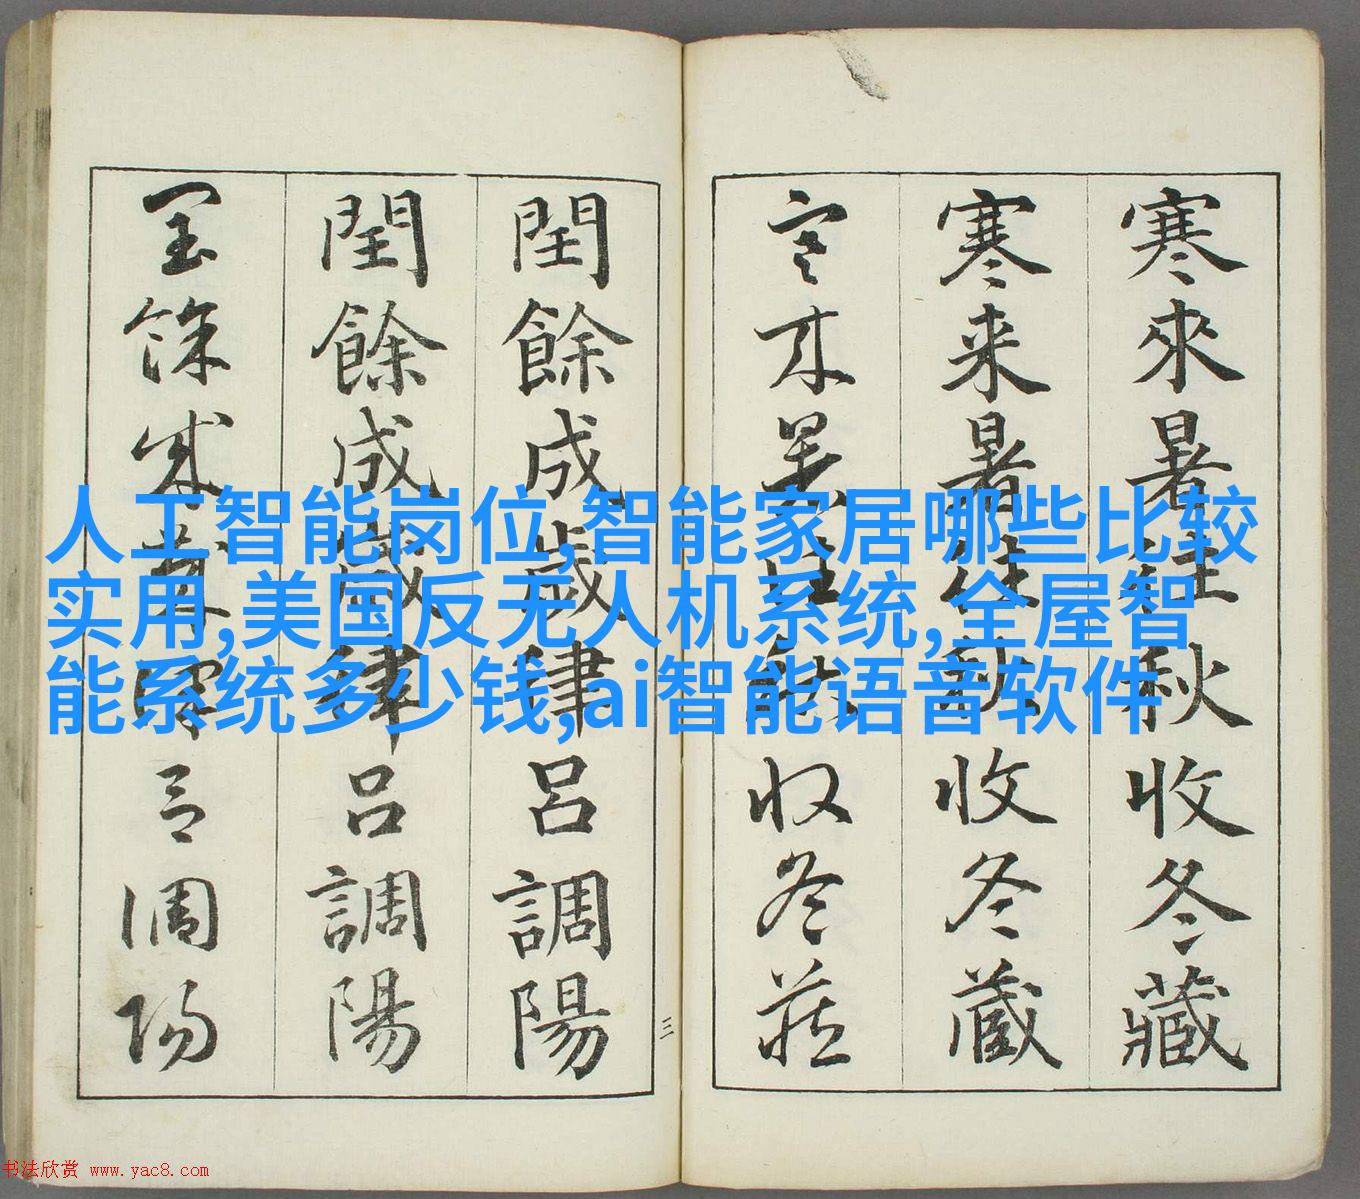 寒來暑往秋收冬藏
寒来暑往秋收冬蔵
寒来暑往秋收冬藏
閏餘成歲律呂調陽
閏餘成歲律呂調陽
閏餘成歲律呂調陽
三
人工智能岗位,智能家居哪些比较
实用,美国反无人机系统,全屋智
能系统多少钱,ai智能语音软件
书法欣赏 www.yac8.com